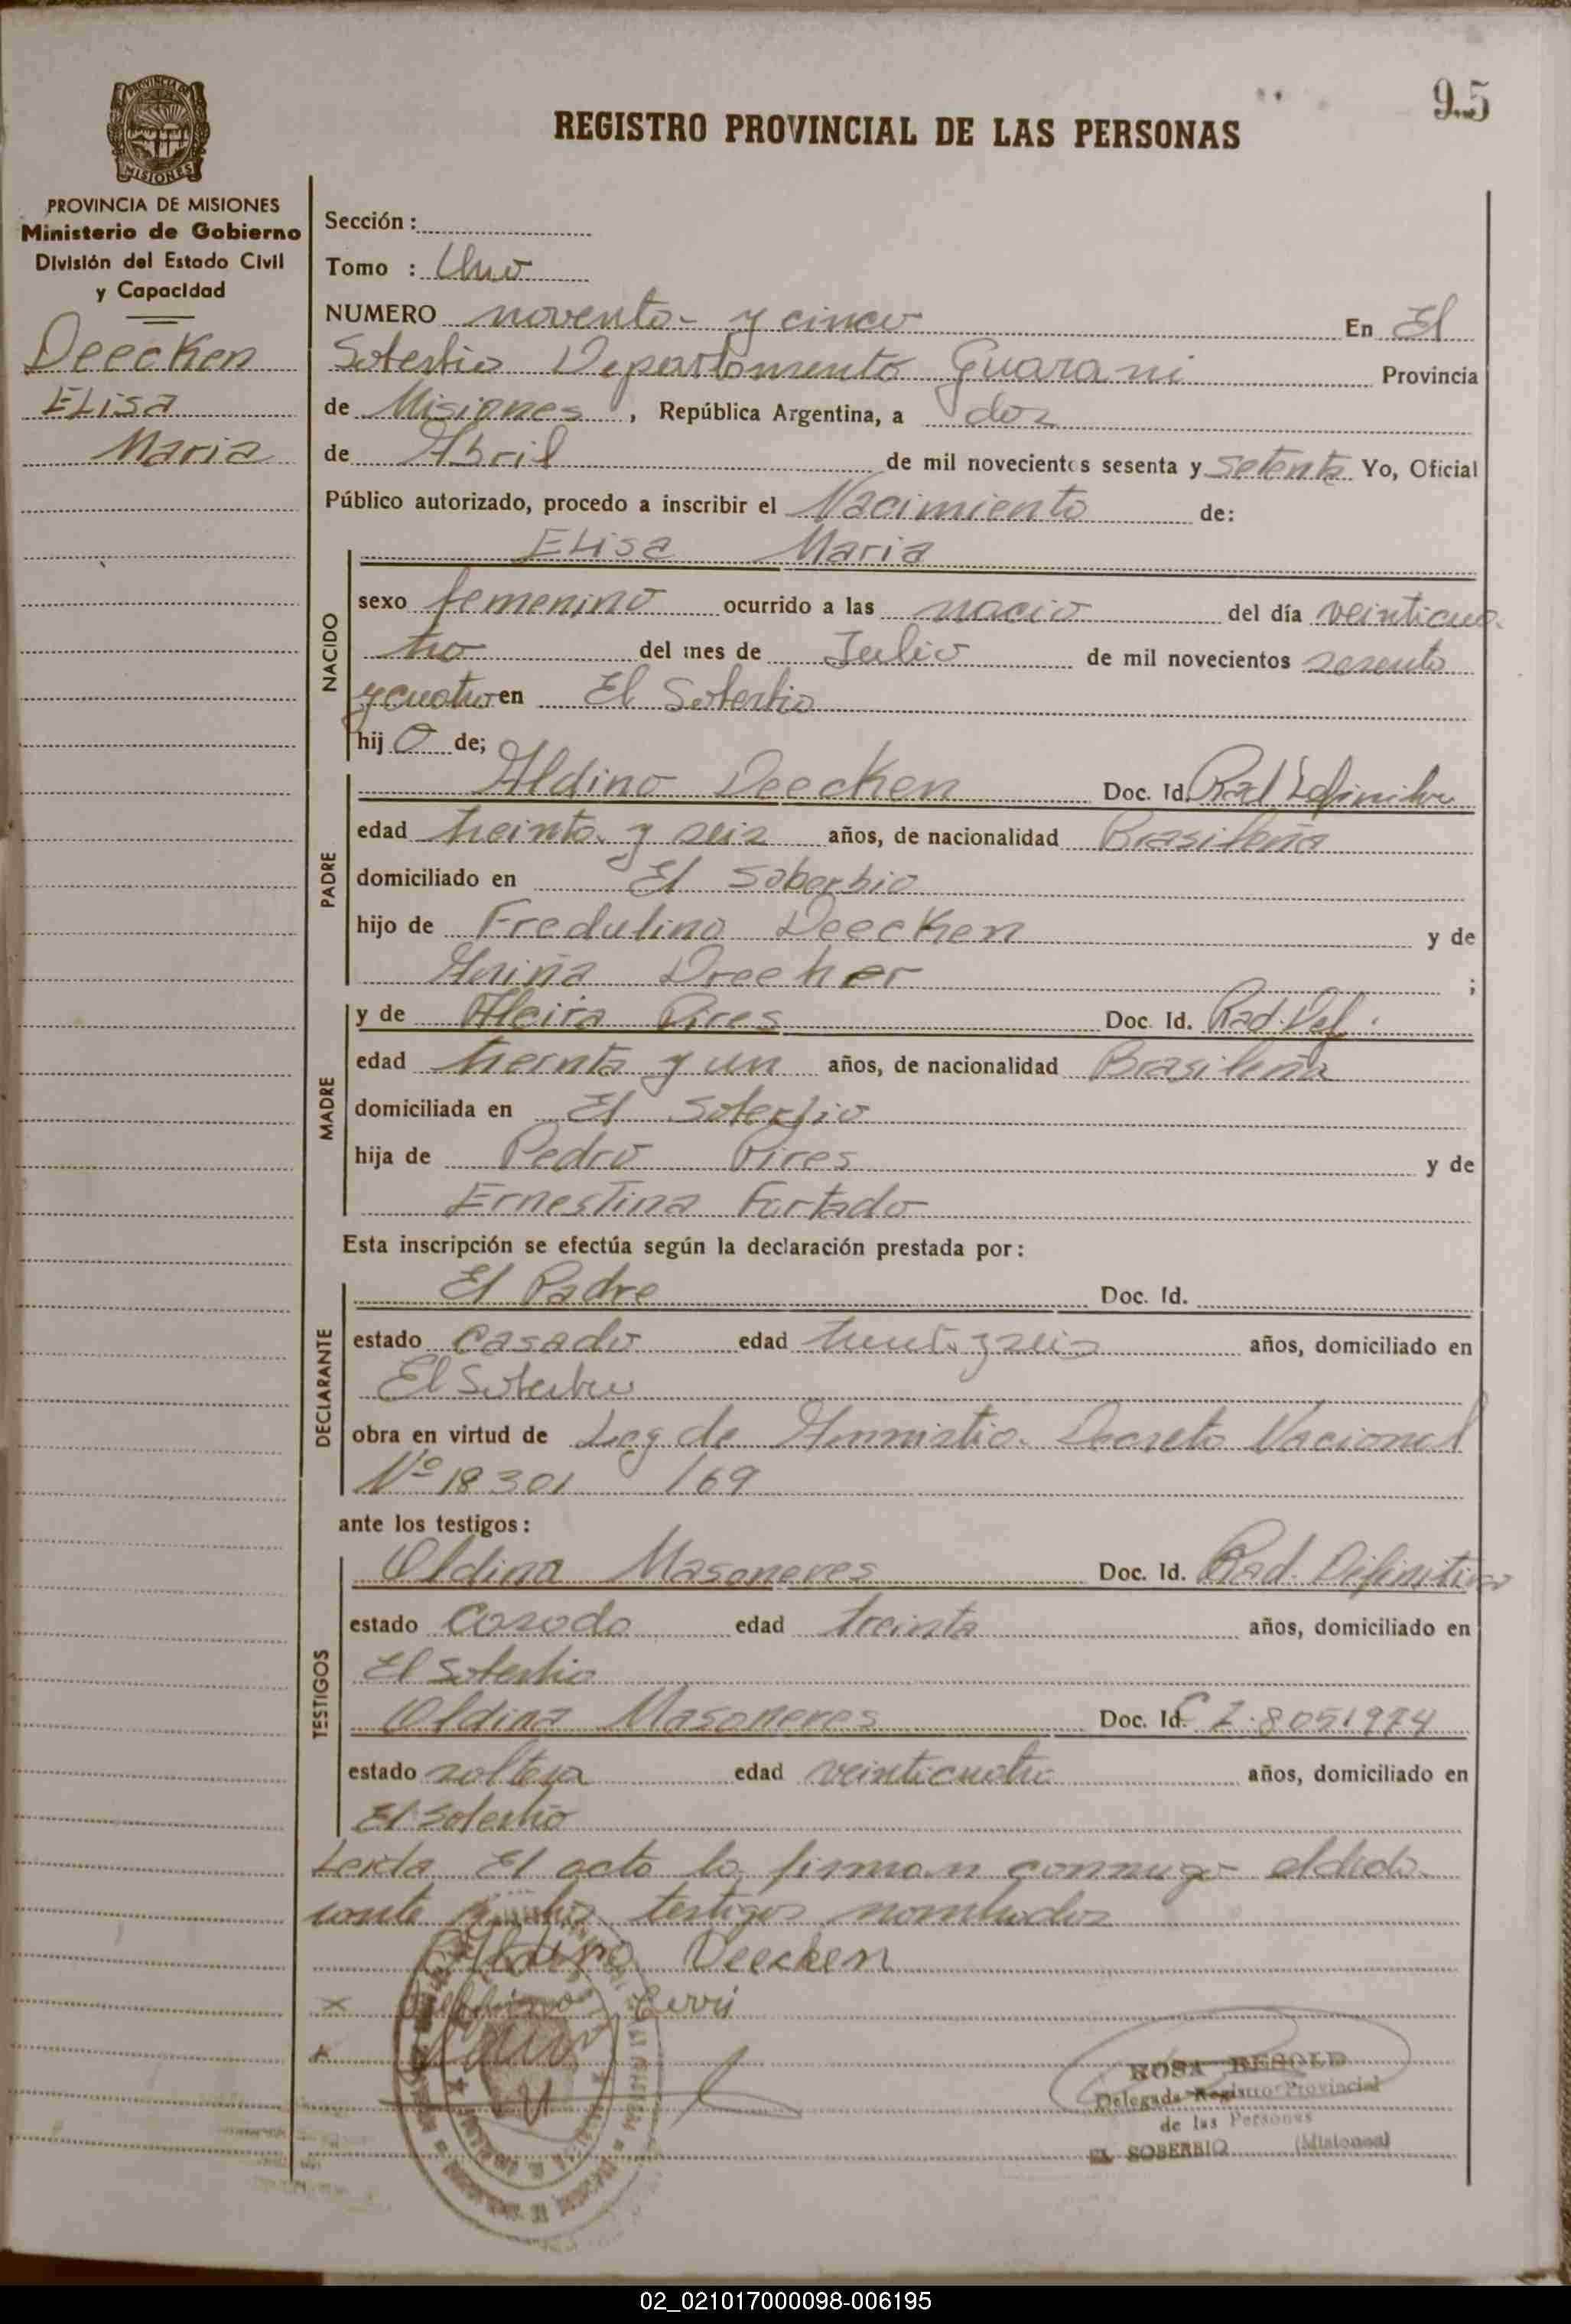 95
REGISTRO PROVINCIAL DE LAS PERSONAS
PROVINCIA DE MISIONES
MISIONES
PROVINCIA DE MISIONES
Ministerio de Gobierno
División del Estado Civil
y Capacidad
Deecken
Elisa
Maria
Sección :
Tomo : Uno
NUMERO noventa y cinco En El
Soberbio Departamento Guarani Provincia
de Misiones, República Argentina, a dos
de Abril de mil novecientos sesenta y setenta Yo, Oficial
Público autorizado, procedo a inscribir el Nacimiento de:
Elisa Maria
NACIDO
sexo femenino ocurrido a las nacio del día veinticua
tro del mes de Julio de mil novecientos sesenta
y cuatro en El Soberbio
hij o de;
PADRE
Aldino Deecken Doc. Id. Rad Definitiva
edad treinta y seis años, de nacionalidad Brasileña
domiciliado en El Soberbio
hijo de Fredulino Deecken y de
Dreeher ;
MADRE
y de Alcira Pires Doc. Id. Rad. Def.
edad treinta y un años, de nacionalidad Brasileña
domiciliada en El Soberbio
hija de Pedro Pires y de
Ernestina Furtado
Esta inscripción se efectúa según la declaración prestada por:
DECLARANTE
El Padre Doc. Id.
estado casado edad treinta y seis años, domiciliado en
El Soberbio
obra en virtud de Ley de Amnistia Decreto Nacional
Nº 18301 /69
ante los testigos:
TESTIGOS
Oldina Masoneves Doc. Id. Rad. Difinitiva
estado Casado edad treinta años, domiciliado en
El Soberbio
Oldina Masoneves Doc. Id. C I. 8051974
estado soltera edad veinticuatro años, domiciliado en
El Soberbio
Leida El acto la firman conmigo el decla
rante testigos nombrados
Aldino Deecken
x
ROSA BESOLD
Delegada Registro Provincial
de las Personas
EL SOBERBIO (Misiones)
02_021017000098-006195